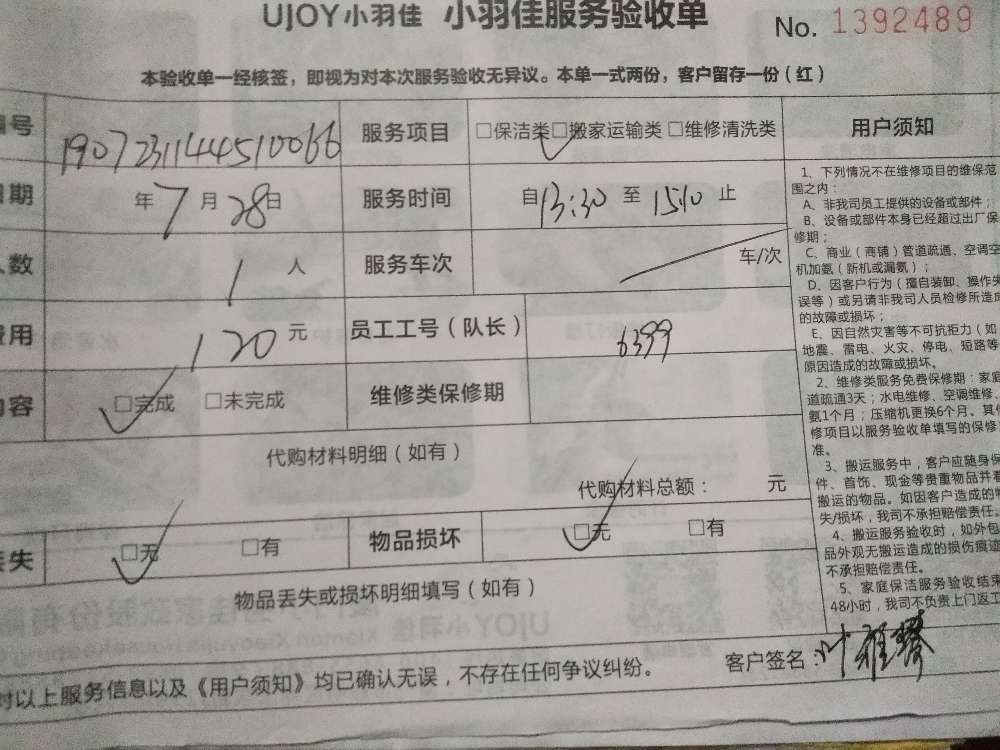 UJOY小羽佳 小羽佳服务验收单 No. 1392489
本验收单一经核签，即视为对本次服务验收无异议。本单一式两份，客户留存一份（红）
编号 1907231144510066 服务项目 □保洁类□搬家运输类 □维修清洗类
日期 年7月28日 服务时间 自13:30至15:10止
人数 1人 服务车次 车/次
费用 120元 员工工号（队长） 6399
内容 □完成 □未完成 维修类保修期
代购材料明细（如有）
代购材料总额： 元
丢失 □无 □有 物品损坏 □无 □有
物品丢失或损坏明细填写（如有）
对以上服务信息以及《用户须知》均已确认无误，不存在任何争议纠纷。 客户签名：叶雅
用户须知
1、下列情况不在维修项目的维保范
围之内：
A、非我司员工提供的设备或部件；
B、设备或部件本身已经超过出厂保
修期；
C、商业（商铺）管道疏通、空调空
机加氨（新机或漏氨）；
D、因客户行为（擅自装卸、操作失
误等）或另请非我司人员检修所造成
的故障或损坏；
E、因自然灾害等不可抗拒力（如
地震、雷电、火灾、停电、短路等
原因造成的故障或损坏。
2、维修类服务免费保修期：家庭
道疏通3天；水电维修、空调维修、
氨1个月；压缩机更换6个月。其他
修项目以服务验收单填写的保修
准。
3、搬运服务中，客户应随身保
件、首饰、现金等贵重物品并看
搬运的物品。如因客户造成的物
失/损坏，我司不承担赔偿责任。
4、搬运服务验收时，如外包
品外观无搬运造成的损伤痕迹
不承担赔偿责任。
5、家庭保洁服务验收结束
48小时，我司不负责上门返工